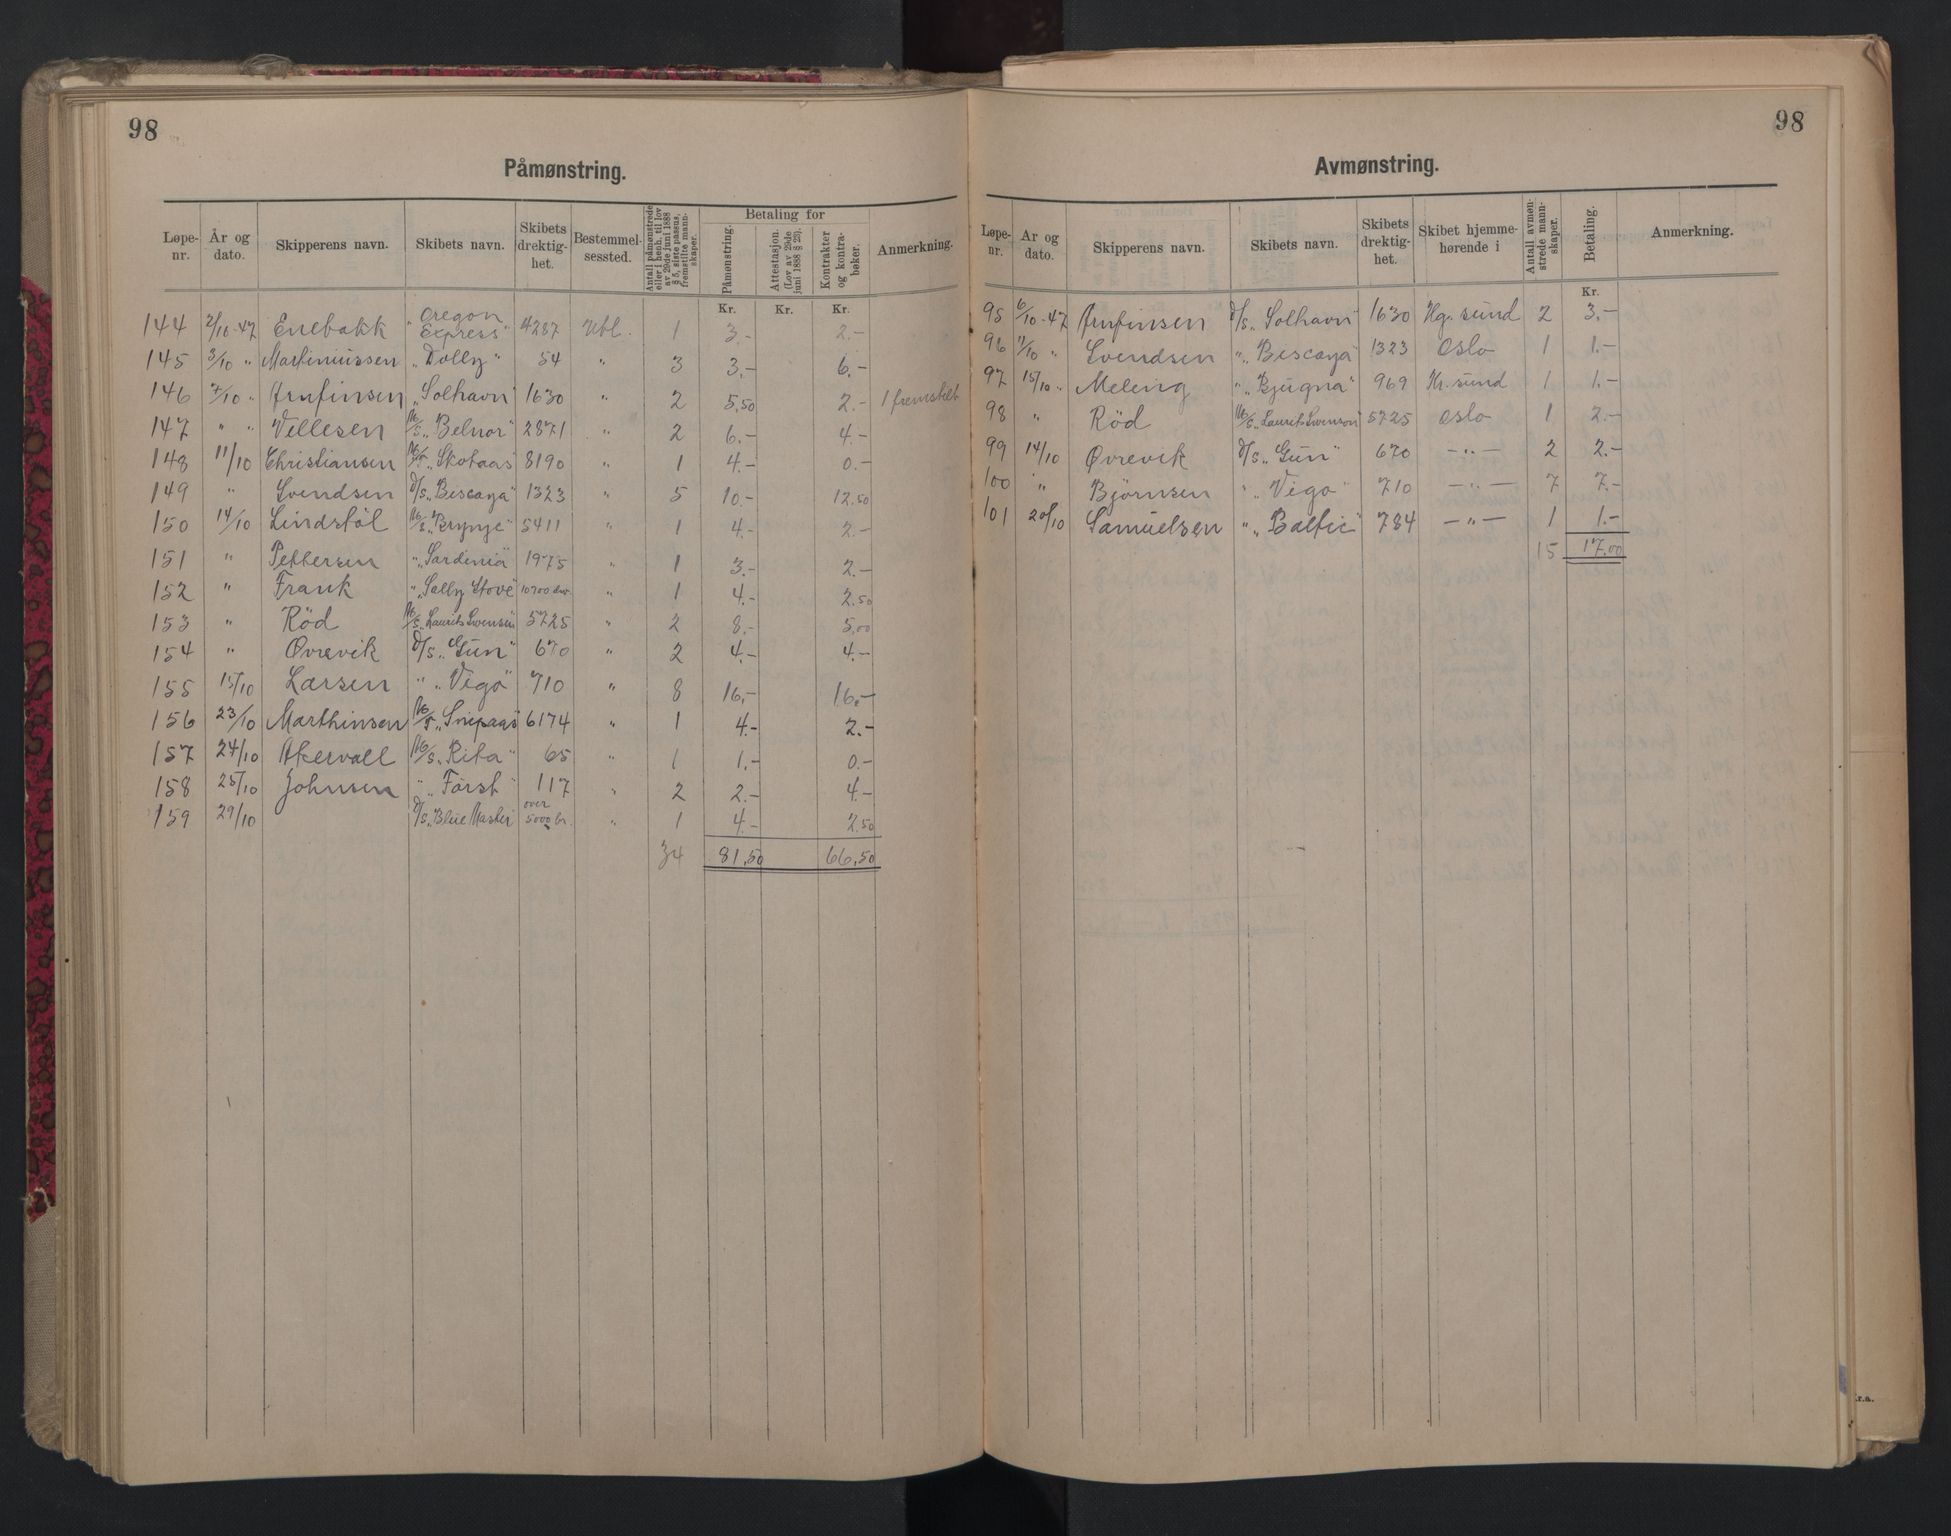 98
Påmønstring.
Løpe-nr. År og dato. Skipperens navn. Skibets navn. Skibets drektig-het. Bestemmel-sessted. Antall påmønstrede eller i henh. til lov av 29de juni 1888 § 5, siste passus, fremstilte mann-skaper. Betaling for Påmønstring. Attestasjon. (Lov av 29de juni 1888 § 23). Kontrakter og kontra-bøker. Anmerkning.
Kr. Kr. Kr.
144 2/10-47 Enebakk "Oregon Express" 4287 Utl. 1 3.- 2.-
145 3/10 " Martiniussen "Dolly" 54 " 3 3.- 6.-
146 7/10 " Arnfinsen "Solhavn" 1630 " 2 5,50 2.- 1 fremstilt
147 " " Vellesen M/S "Belnor" 2871 " 2 6.- 4.-
148 11/10 Christiansen M/T "Skotaas" 8190 " 1 4.- 0.-
149 " Svendsen D/S "Biscaya" 1323 " 5 10.- 12.50
150 14/10 Lindstöl M/S "Brynje" 5411 " 1 4.- 2.-
151 " Pettersen " "Sardinia" 1975 " 1 3.- 2.-
152 " Frank " "Sally Stove" 10700 dw. " 1 4.- 2.50
153 " Röd M/S "Laurits Swenson" 5725 " 2 8.- 5,00
154 " Ovrevik D/S "Gun" 670 " 2 4.- 4.-
155 15/10 Larsen " "Vigo" 710 " 8 16,- 16.-
156 23/10 Marthinsen M/T "Snipaas" 6174 " 1 4.- 2.-
157 24/10 Akervall M/S "Rita" 65 " 1 1.- 0.-
158 25/10 Johnsen " "Först" 117 " 2 2.- 4.-
159 29/10 D/S "Blue Master" over 5000 br. " 1 4.- 2.50
34 81,50 66,50
98
Avmønstring.
Løpe-nr. År og dato. Skipperens navn. Skibets navn. Skibets drektig-het. Skibet hjemme-hørende i Antall avmøn-strede mann-skaper. Betaling. Anmerkning.
Kr.
95 6/10-47 Arnfinsen D/S "Solhavn" 1630 Hg. sund 2 3.-
96 11/10 " Svendsen " "Biscaya" 1323 Oslo 1 1.-
97 15/10 " Meling " "Bjugna" 969 Kr. sund 1 1.-
98 " Röd M/S "Laurits Swenson" 5725 Oslo 1 2.-
99 14/10 Ovrevik D/S "Gun" 670 -"- 2 2.-
100 " Bjørnsen " "Vigo" 710 -"- 7 7.-
101 20/10 Samuelsen " "Baltic" 784 -"- 1 1.-
15 17.00